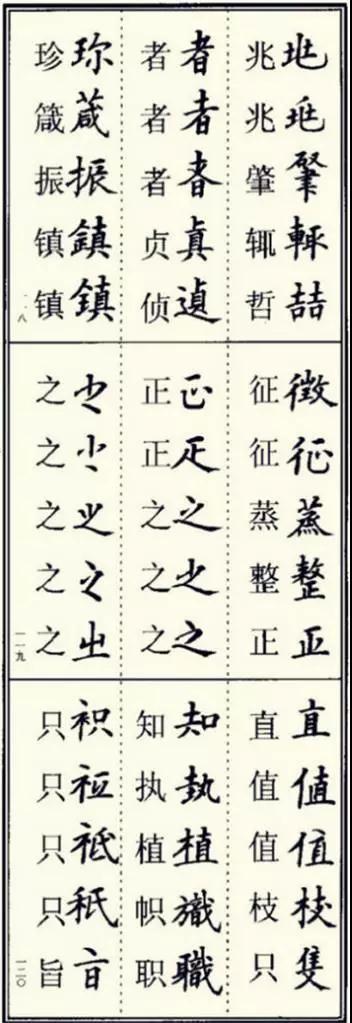 肇輒喆
兆兆肇辄哲
者者者眞遉
者者者贞侦
珎葴振鎮鎮
珍箴振镇镇
一一八
徴征蒸整正
征征蒸整正
正之之之
正正之之之
之之之之之
一一九
直値值枝隻
直值值枝只
知執植職
知执植帜职
秖
只只只只旨
一二〇